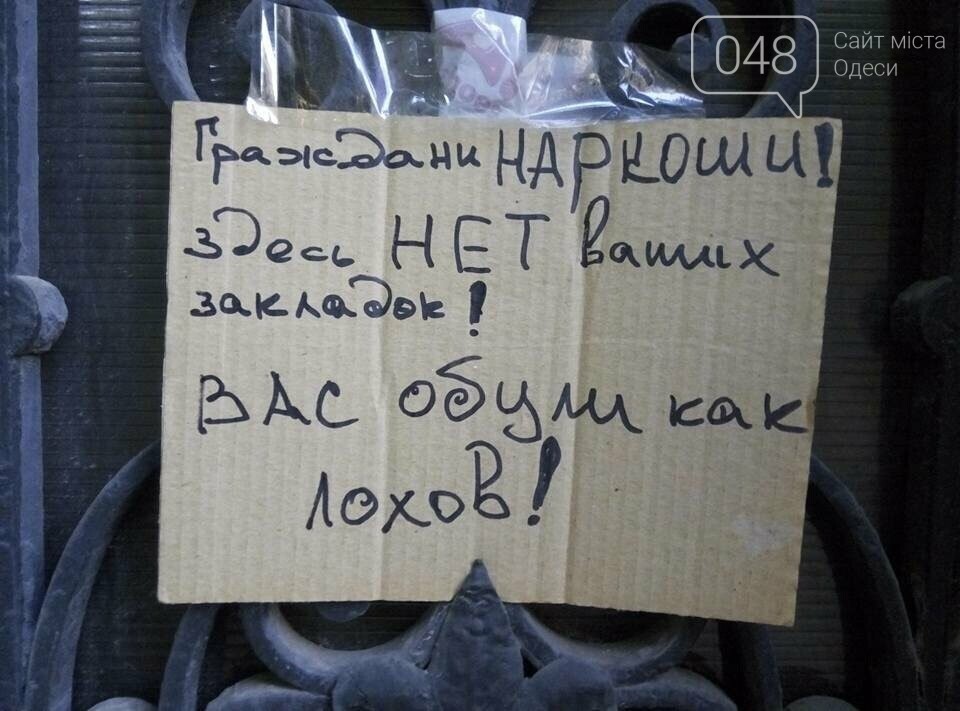 048
Сайт міста
Одеси
Граждани НАРКОШИ!
здесь НЕТ ваших
закладок!
ВАС обули как
лохов!